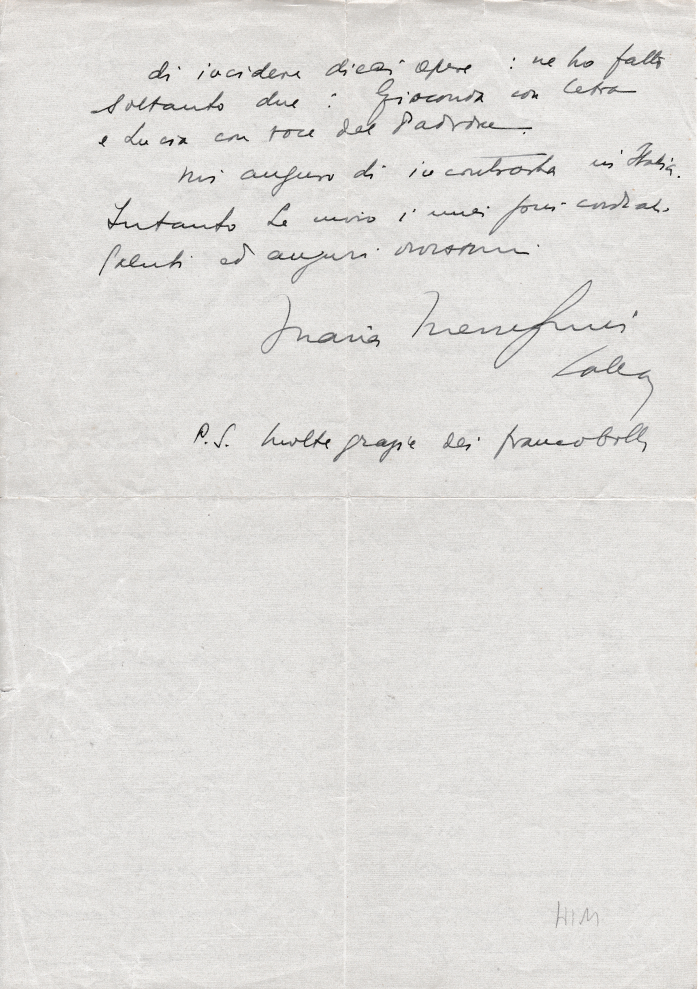 di incidere dieci opere : ne ho fatto
soltanto due : Gioconda con Cetra
e Lucia con Voce del Padrone.
Mi auguro di incontrarla in Italia.
Intanto Le invio i miei più cordiali
saluti ed auguri vivissimi
Maria Meneghini
Callas
P.S. Molte grazie dei francobolli